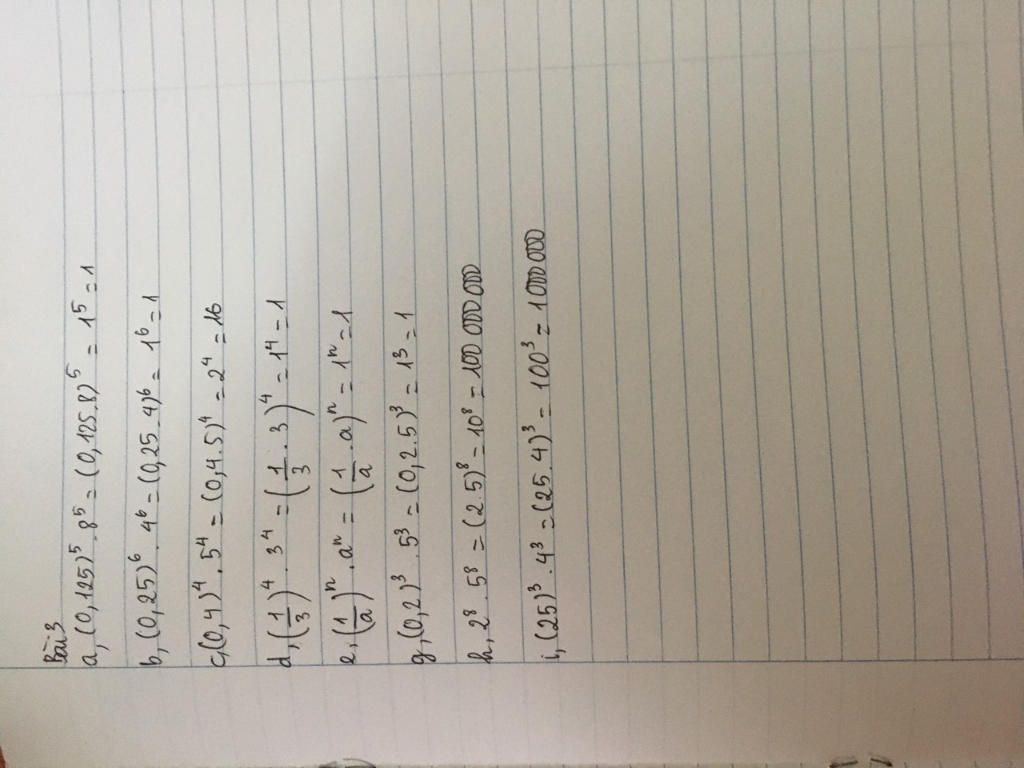 Bài 3
a, (0,125)⁵ . 8⁵ = (0,125.8)⁵ = 1⁵ = 1
b, (0,25)⁶ . 4⁶ = (0,25.4)⁶ = 1⁶ = 1
c, (0,4)⁴ . 5⁴ = (0,4.5)⁴ = 2⁴ = 16
d, (1/3)⁴ . 3⁴ = (1/3 . 3)⁴ = 1⁴ = 1
e, (1/a)ⁿ . aⁿ = (1/a . a)ⁿ = 1ⁿ = 1
g, (0,2)³ . 5³ = (0,2.5)³ = 1³ = 1
h, 2⁸ . 5⁸ = (2.5)⁸ = 10⁸ = 100 000 000
i, (25)³ . 4³ = (25.4)³ = 100³ = 1 000 000